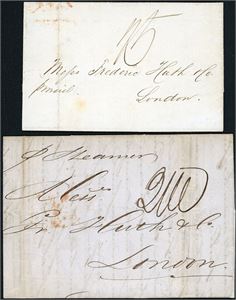 Messrs Frederic Huth & Co.
London.
p Steamer
Messrs
Fr. Huth & Co.
London